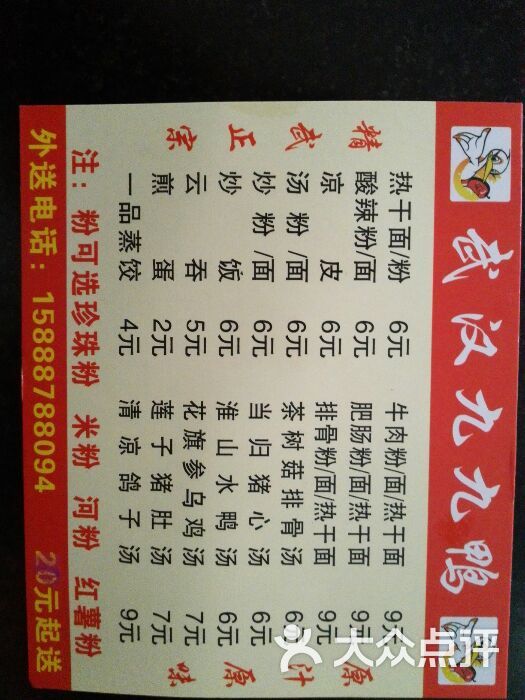 武汉九九鸭
精武正宗
热干面/粉 6元 牛肉粉/面/热干面 9元
酸辣粉/面 6元 肥肠粉/面/热干面 9元
凉皮 6元 排骨粉/面/热干面 9元
汤粉/面 6元 茶树菇排骨汤 6元
炒粉/面 6元 当归猪心汤 6元
炒饭 6元 淮山水鸭汤 6元
云吞 5元 花旗参乌鸡汤 7元
煎蛋 2元 莲子猪肚汤 7元
一品蒸饺 4元 清凉鸽子汤 9元
原汁原味
注：粉可选珍珠粉 米粉 河粉 红薯粉
外送电话：15888788094 20元起送
大众点评